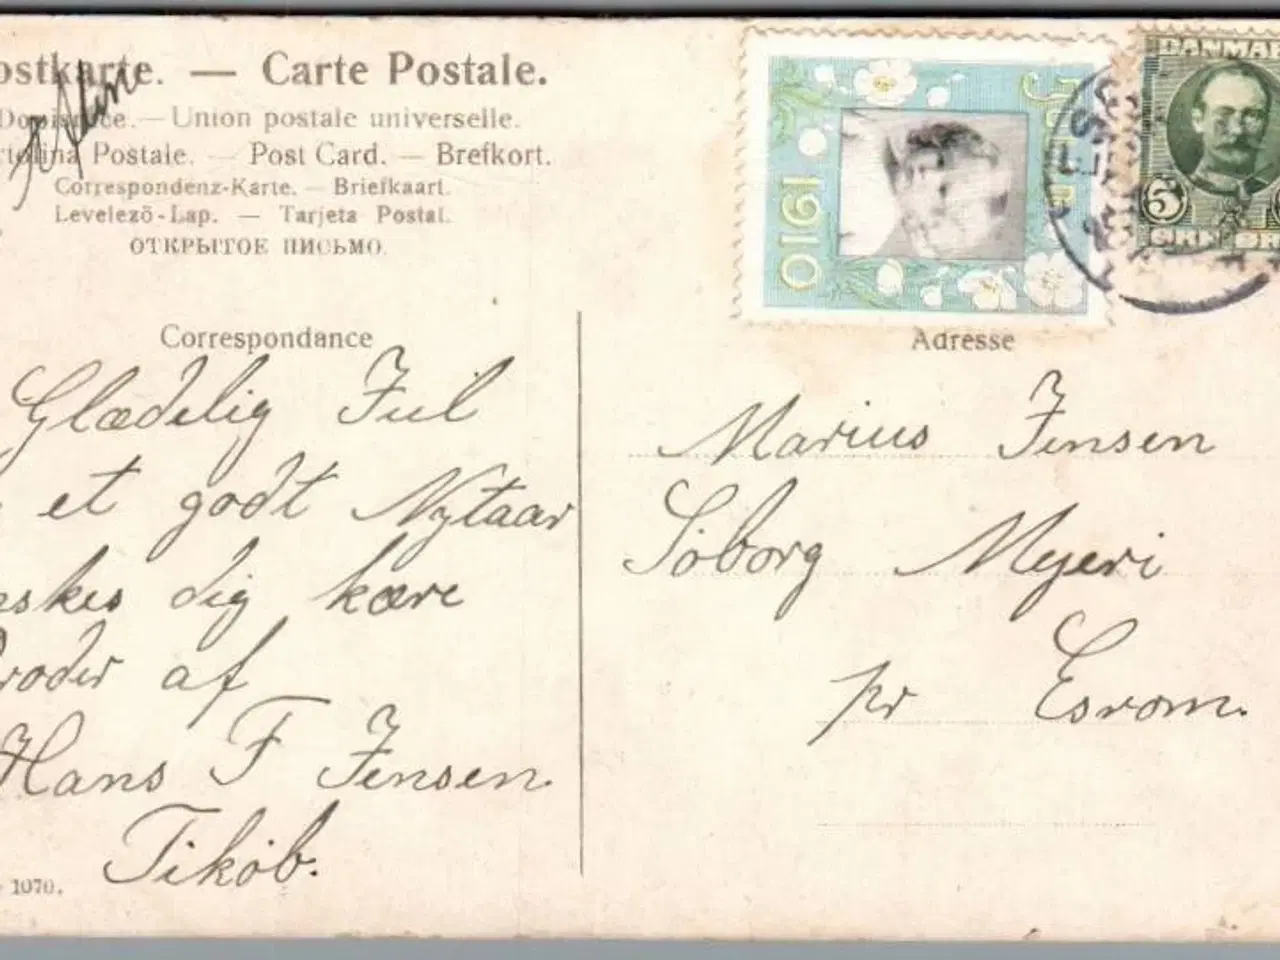 ostkarte. — Carte Postale.
— Union postale universelle.
rtolina Postale. — Post Card. — Brefkort.
Correspondenz-Karte. — Briefkaart.
Levelezö-Lap. — Tarjeta Postal.
ОТКРЫТОЕ ПИСЬМО.
1910
DANMAR
5
Correspondance
Glædelig Jul
et godt Nytaar
nskes dig kære
Broder af
Hans F Jensen.
Tikøb.
1070.
Adresse
Marius Jensen
Søborg Mejeri
pr Esrom.